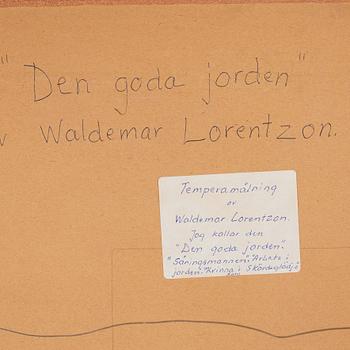 " Den goda jorden "
v Waldemar Lorentzon.
Temperamålning
av
Waldemar Lorentzon.
Jag kallar den
"Den goda jorden".
"Såningsmannen". "Arbete i
jorden". "Kvinna i Skördeglädje